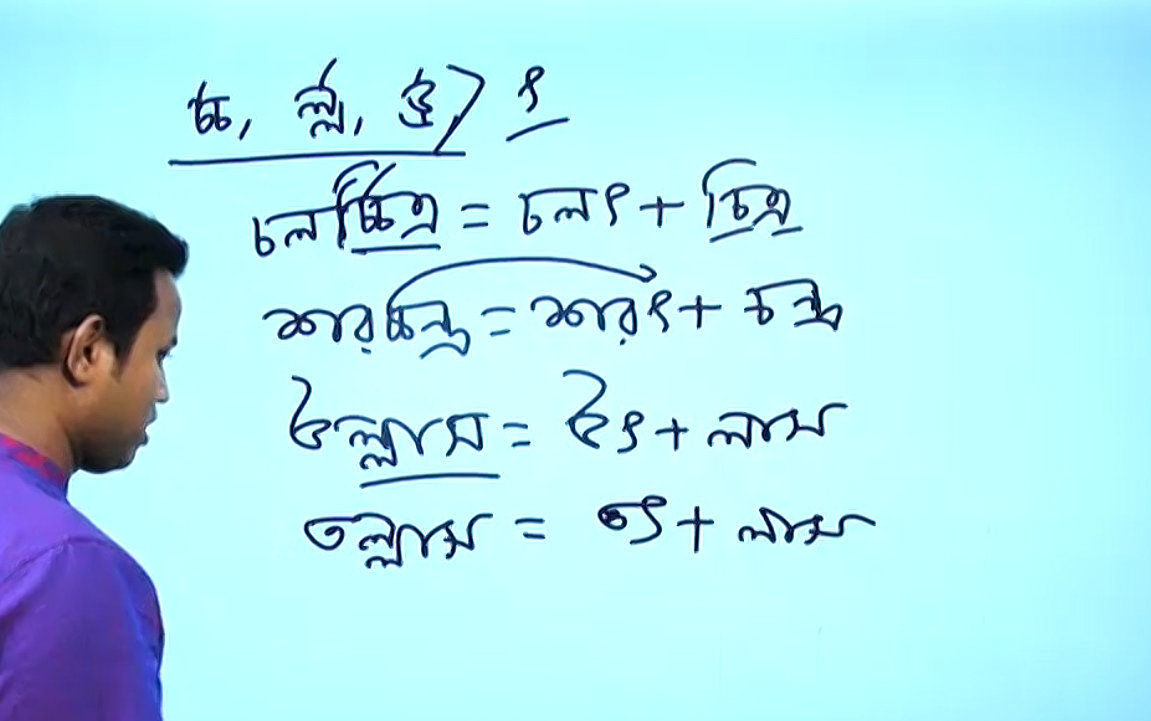 চ্চ, ল্ল, ড্ড > ৎ
চলচ্চিত্র = চলৎ + চিত্র
শরচ্চন্দ্র = শরৎ + চন্দ্র
উল্লাস = উৎ + লাস
তল্লাস = তৎ + লাস